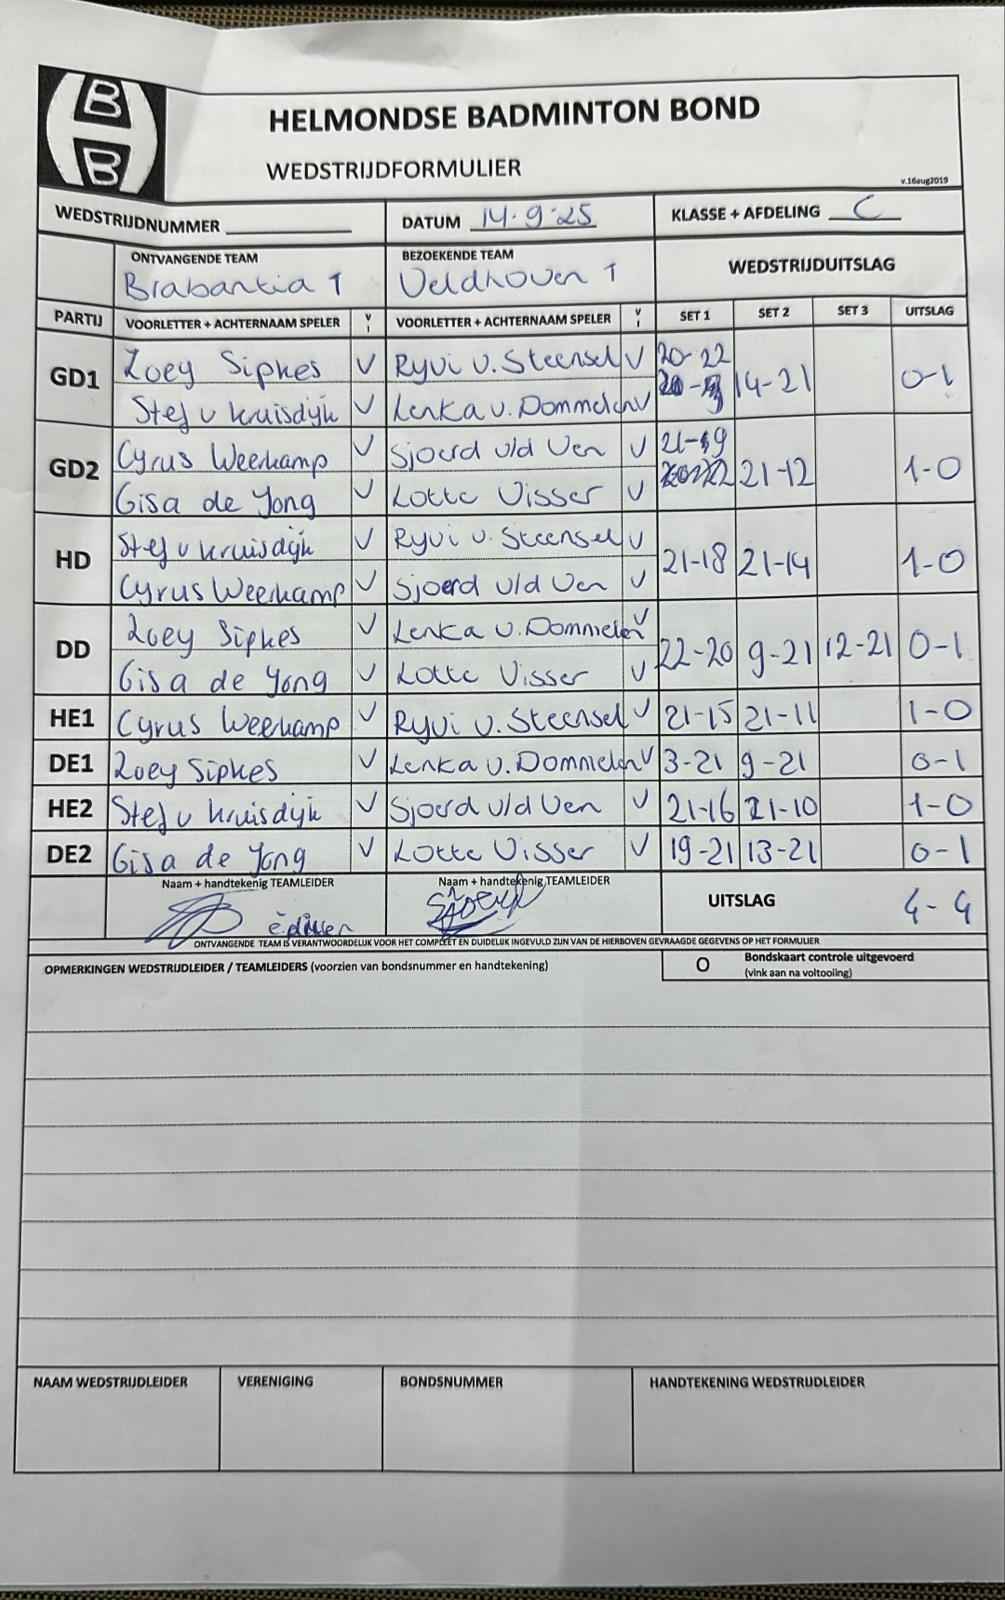 B
B
HELMONDSE BADMINTON BOND
WEDSTRIJDFORMULIER
v.16aug2019
WEDSTRIJDNUMMER
DATUM 14-9-25
KLASSE + AFDELING C
ONTVANGENDE TEAM
BEZOEKENDE TEAM
WEDSTRIJDUITSLAG
Brabantia 1
Veldhoven 1
PARTIJ VOORLETTER + ACHTERNAAM SPELER V I VOORLETTER + ACHTERNAAM SPELER V I SET 1 SET 2 SET 3 UITSLAG
GD1 Zoey Sipkes V Ryui v. Steensel V 20-22 14-21 0-1
Stef v Kruisdijk V Lenka v. Dommelen V
GD2 Cyrus Weerkamp V Sjoerd v/d Ven V 21-19 21-12 1-0
Gisa de Jong V Lotte Visser V
HD Stef v Kruisdijk V Ryui v. Steensel V 21-18 21-14 1-0
Cyrus Weerkamp V Sjoerd v/d Ven V
DD Zoey Sipkes V Lenka v. Dommelen V 22-20 9-21 12-21 0-1
Gisa de Jong V Lotte Visser V
HE1 Cyrus Weerkamp V Ryui v. Steensel V 21-15 21-11 1-0
DE1 Zoey Sipkes V Lenka v. Dommelen V 3-21 9-21 0-1
HE2 Stef v Kruisdijk V Sjoerd v/d Ven V 21-16 21-10 1-0
DE2 Gisa de Jong V Lotte Visser V 19-21 13-21 0-1
Naam + handtekenig TEAMLEIDER
Naam + handtekenig TEAMLEIDER
UITSLAG 4-4
Sjoerd
ONTVANGENDE TEAM IS VERANTWOORDELIJK VOOR HET COMPLEET EN DUIDELIJK INGEVULD ZIJN VAN DE HIERBOVEN GEVRAAGDE GEGEVENS OP HET FORMULIER
OPMERKINGEN WEDSTRIJDLEIDER / TEAMLEIDERS (voorzien van bondsnummer en handtekening)
O Bondskaart controle uitgevoerd
(vink aan na voltooling)
NAAM WEDSTRIJDLEIDER VERENIGING BONDSNUMMER HANDTEKENING WEDSTRIJDLEIDER